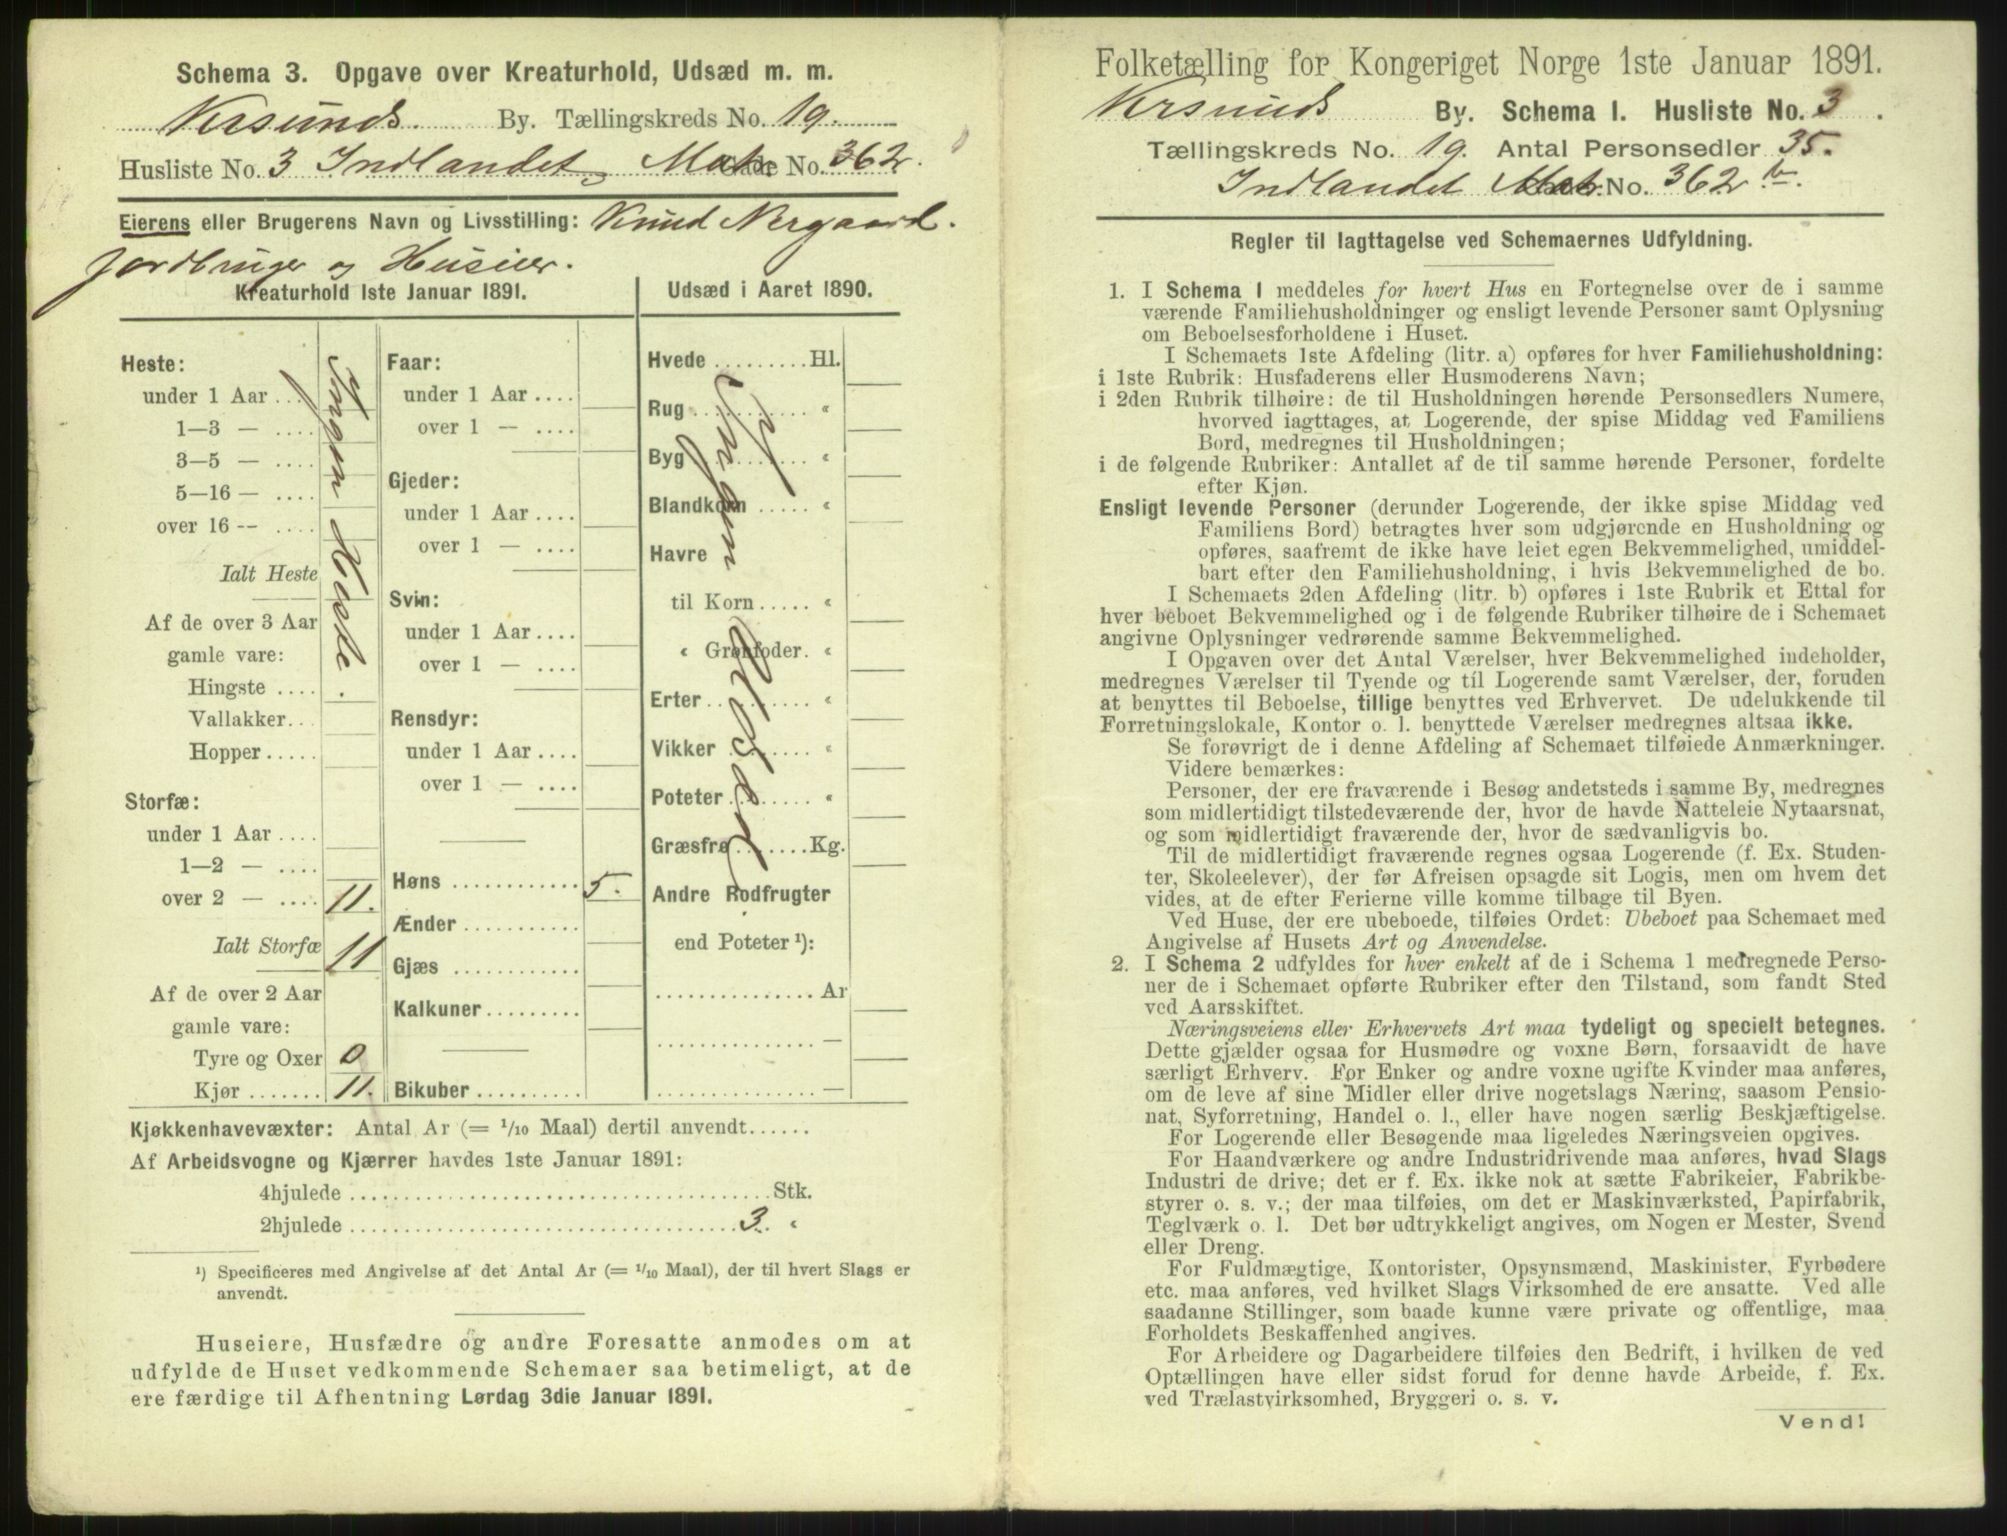 Schema 3. Opgave over Kreaturhold, Udsæd m. m.
Krsunds By. Tællingskreds No. 19.
Husliste No. 3 Indlandet, Matr. No. 362.
Eierens eller Brugerens Navn og Livsstilling: Knud Nergaard.
Jordbruger og Huseier.
Kreaturhold 1ste Januar 1891.
Udsæd i Aaret 1890.
Heste:
under 1 Aar
1—3 —
3—5 —
5—16 —
over 16 —
Ialt Heste
Af de over 3 Aar
gamle vare:
Hingste
Vallakker
Hopper
Ingen Heste.
Storfæ:
under 1 Aar
1—2 —
over 2 — 11.
Ialt Storfæ 11
Af de over 2 Aar
gamle vare:
Tyre og Oxer 0
Kjør 11.
Faar:
under 1 Aar
over 1 —
Gjeder:
under 1 Aar
over 1 —
Svin:
under 1 Aar
over 1 —
Rensdyr:
under 1 Aar
over 1 —
Høns 5.
Ænder
Gjæs
Kalkuner
Bikuber
Hvede Hl.
Rug "
Byg "
Blandkorn "
Havre
til Korn "
" Grønfoder "
Erter "
Vikker "
Poteter "
Græsfrø Kg.
Andre Rodfrugter
end Poteter ¹):
Ar
—
—
Ingen Udsæd
Kjøkkenhavevæxter: Antal Ar (= 1/10 Maal) dertil anvendt
Af Arbeidsvogne og Kjærrer havdes 1ste Januar 1891:
4hjulede Stk.
2hjulede 3. "
¹) Specificeres med Angivelse af det Antal Ar (= 1/10 Maal), der til hvert Slags er
anvendt.
Huseiere, Husfædre og andre Foresatte anmodes om at
udfylde de Huset vedkommende Schemaer saa betimeligt, at de
ere færdige til Afhentning Lørdag 3die Januar 1891.
Folketælling for Kongeriget Norge 1ste Januar 1891.
Krsunds By. Schema I. Husliste No. 3.
Tællingskreds No. 19. Antal Personsedler 35.
Indlandet Matr. No. 362 b.
Regler til Iagttagelse ved Schemaernes Udfyldning.
1. I Schema 1 meddeles for hvert Hus en Fortegnelse over de i samme
værende Familiehusholdninger og ensligt levende Personer samt Oplysning
om Beboelsesforholdene i Huset.
I Schemaets 1ste Afdeling (litr. a) opføres for hver Familiehusholdning:
i 1ste Rubrik: Husfaderens eller Husmoderens Navn;
i 2den Rubrik tilhøire: de til Husholdningen hørende Personsedlers Numere,
hvorved iagttages, at Logerende, der spise Middag ved Familiens
Bord, medregnes til Husholdningen;
i de følgende Rubriker: Antallet af de til samme hørende Personer, fordelte
efter Kjøn.
Ensligt levende Personer (derunder Logerende, der ikke spise Middag ved
Familiens Bord) betragtes hver som udgjørende en Husholdning og
opføres, saafremt de ikke have leiet egen Bekvemmelighed, umiddel-
bart efter den Familiehusholdning, i hvis Bekvemmelighed de bo.
I Schemaets 2den Afdeling (litr. b) opføres i 1ste Rubrik et Ettal for
hver beboet Bekvemmelighed og i de følgende Rubriker tilhøire de i Schemaet
angivne Oplysninger vedrørende samme Bekvemmelighed.
I Opgaven over det Antal Værelser, hver Bekvemmelighed indeholder,
medregnes Værelser til Tyende og til Logerende samt Værelser, der, foruden
at benyttes til Beboelse, tillige benyttes ved Erhvervet. De udelukkende til
Forretningslokale, Kontor o. l. benyttede Værelser medregnes altsaa ikke.
Se forøvrigt de i denne Afdeling af Schemaet tilføiede Anmærkninger.
Videre bemærkes:
Personer, der ere fraværende i Besøg andetsteds i samme By, medregnes
som midlertidigt tilstedeværende der, hvor de havde Natteleie Nytaarsnat,
og som midlertidigt fraværende der, hvor de sædvanligvis bo.
Til de midlertidigt fraværende regnes ogsaa Logerende (f. Ex. Studen-
ter, Skoleelever), der før Afreisen opsagde sit Logis, men om hvem det
vides, at de efter Ferierne ville komme tilbage til Byen.
Ved Huse, der ere ubeboede, tilføies Ordet: Ubeboet paa Schemaet med
Angivelse af Husets Art og Anvendelse.
2. I Schema 2 udfyldes for hver enkelt af de i Schema 1 medregnede Perso-
ner de i Schemaet opførte Rubriker efter den Tilstand, som fandt Sted
ved Aarsskiftet.
Næringsveiens eller Erhvervets Art maa tydeligt og specielt betegnes.
Dette gjælder ogsaa for Husmødre og voxne Børn, forsaavidt de have
særligt Erhverv. For Enker og andre voxne ugifte Kvinder maa anføres,
om de leve af sine Midler eller drive nogetslags Næring, saasom Pensio-
nat, Syforretning, Handel o. l., eller have nogen særlig Beskjæftigelse.
For Logerende eller Besøgende maa ligeledes Næringsveien opgives.
For Haandværkere og andre Industridrivende maa anføres, hvad Slags
Industri de drive; det er f. Ex. ikke nok at sætte Fabrikeier, Fabrikbe-
styrer o. s. v.; der maa tilføies, om det er Maskinværksted, Papirfabrik,
Teglværk o. l. Det bør udtrykkeligt angives, om Nogen er Mester, Svend
eller Dreng.
For Fuldmægtige, Kontorister, Opsynsmænd, Maskinister, Fyrbødere
etc. maa anføres, ved hvilket Slags Virksomhed de ere ansatte. Ved alle
saadanne Stillinger, som baade kunne være private og offentlige, maa
Forholdets Beskaffenhed angives.
For Arbeidere og Dagarbeidere tilføies den Bedrift, i hvilken de ved
Optællingen have eller sidst forud for denne havde Arbeide, f. Ex.
ved Trælastvirksomhed, Bryggeri o. s. v.
Vend!